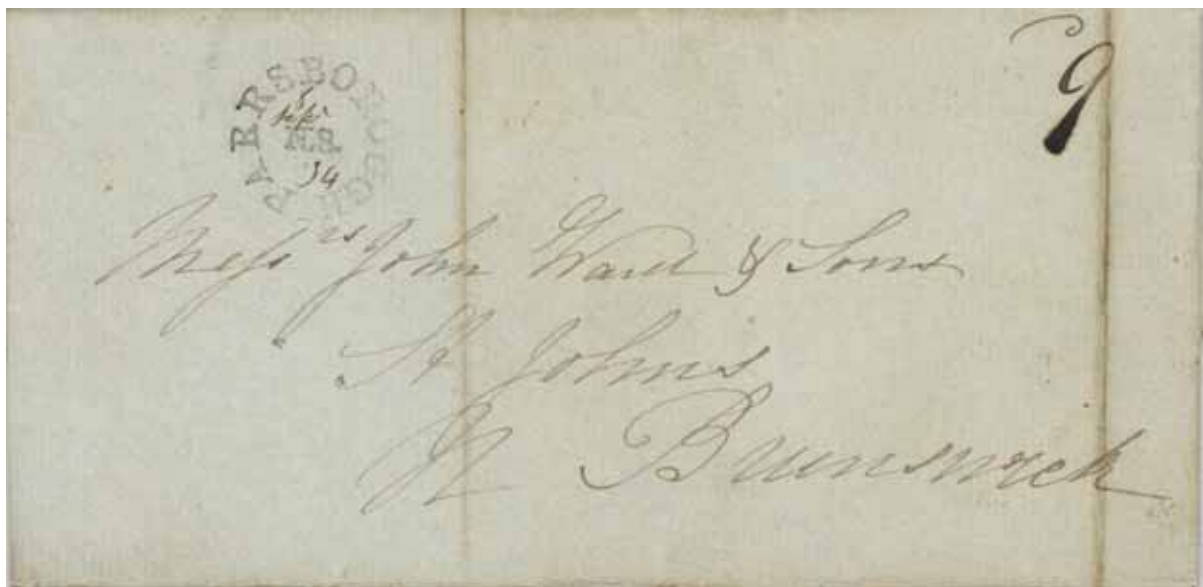 9
PARRSBOROUGH
N.S.
34
Mess^rs John Ward & Sons
St Johns
N Brunswick